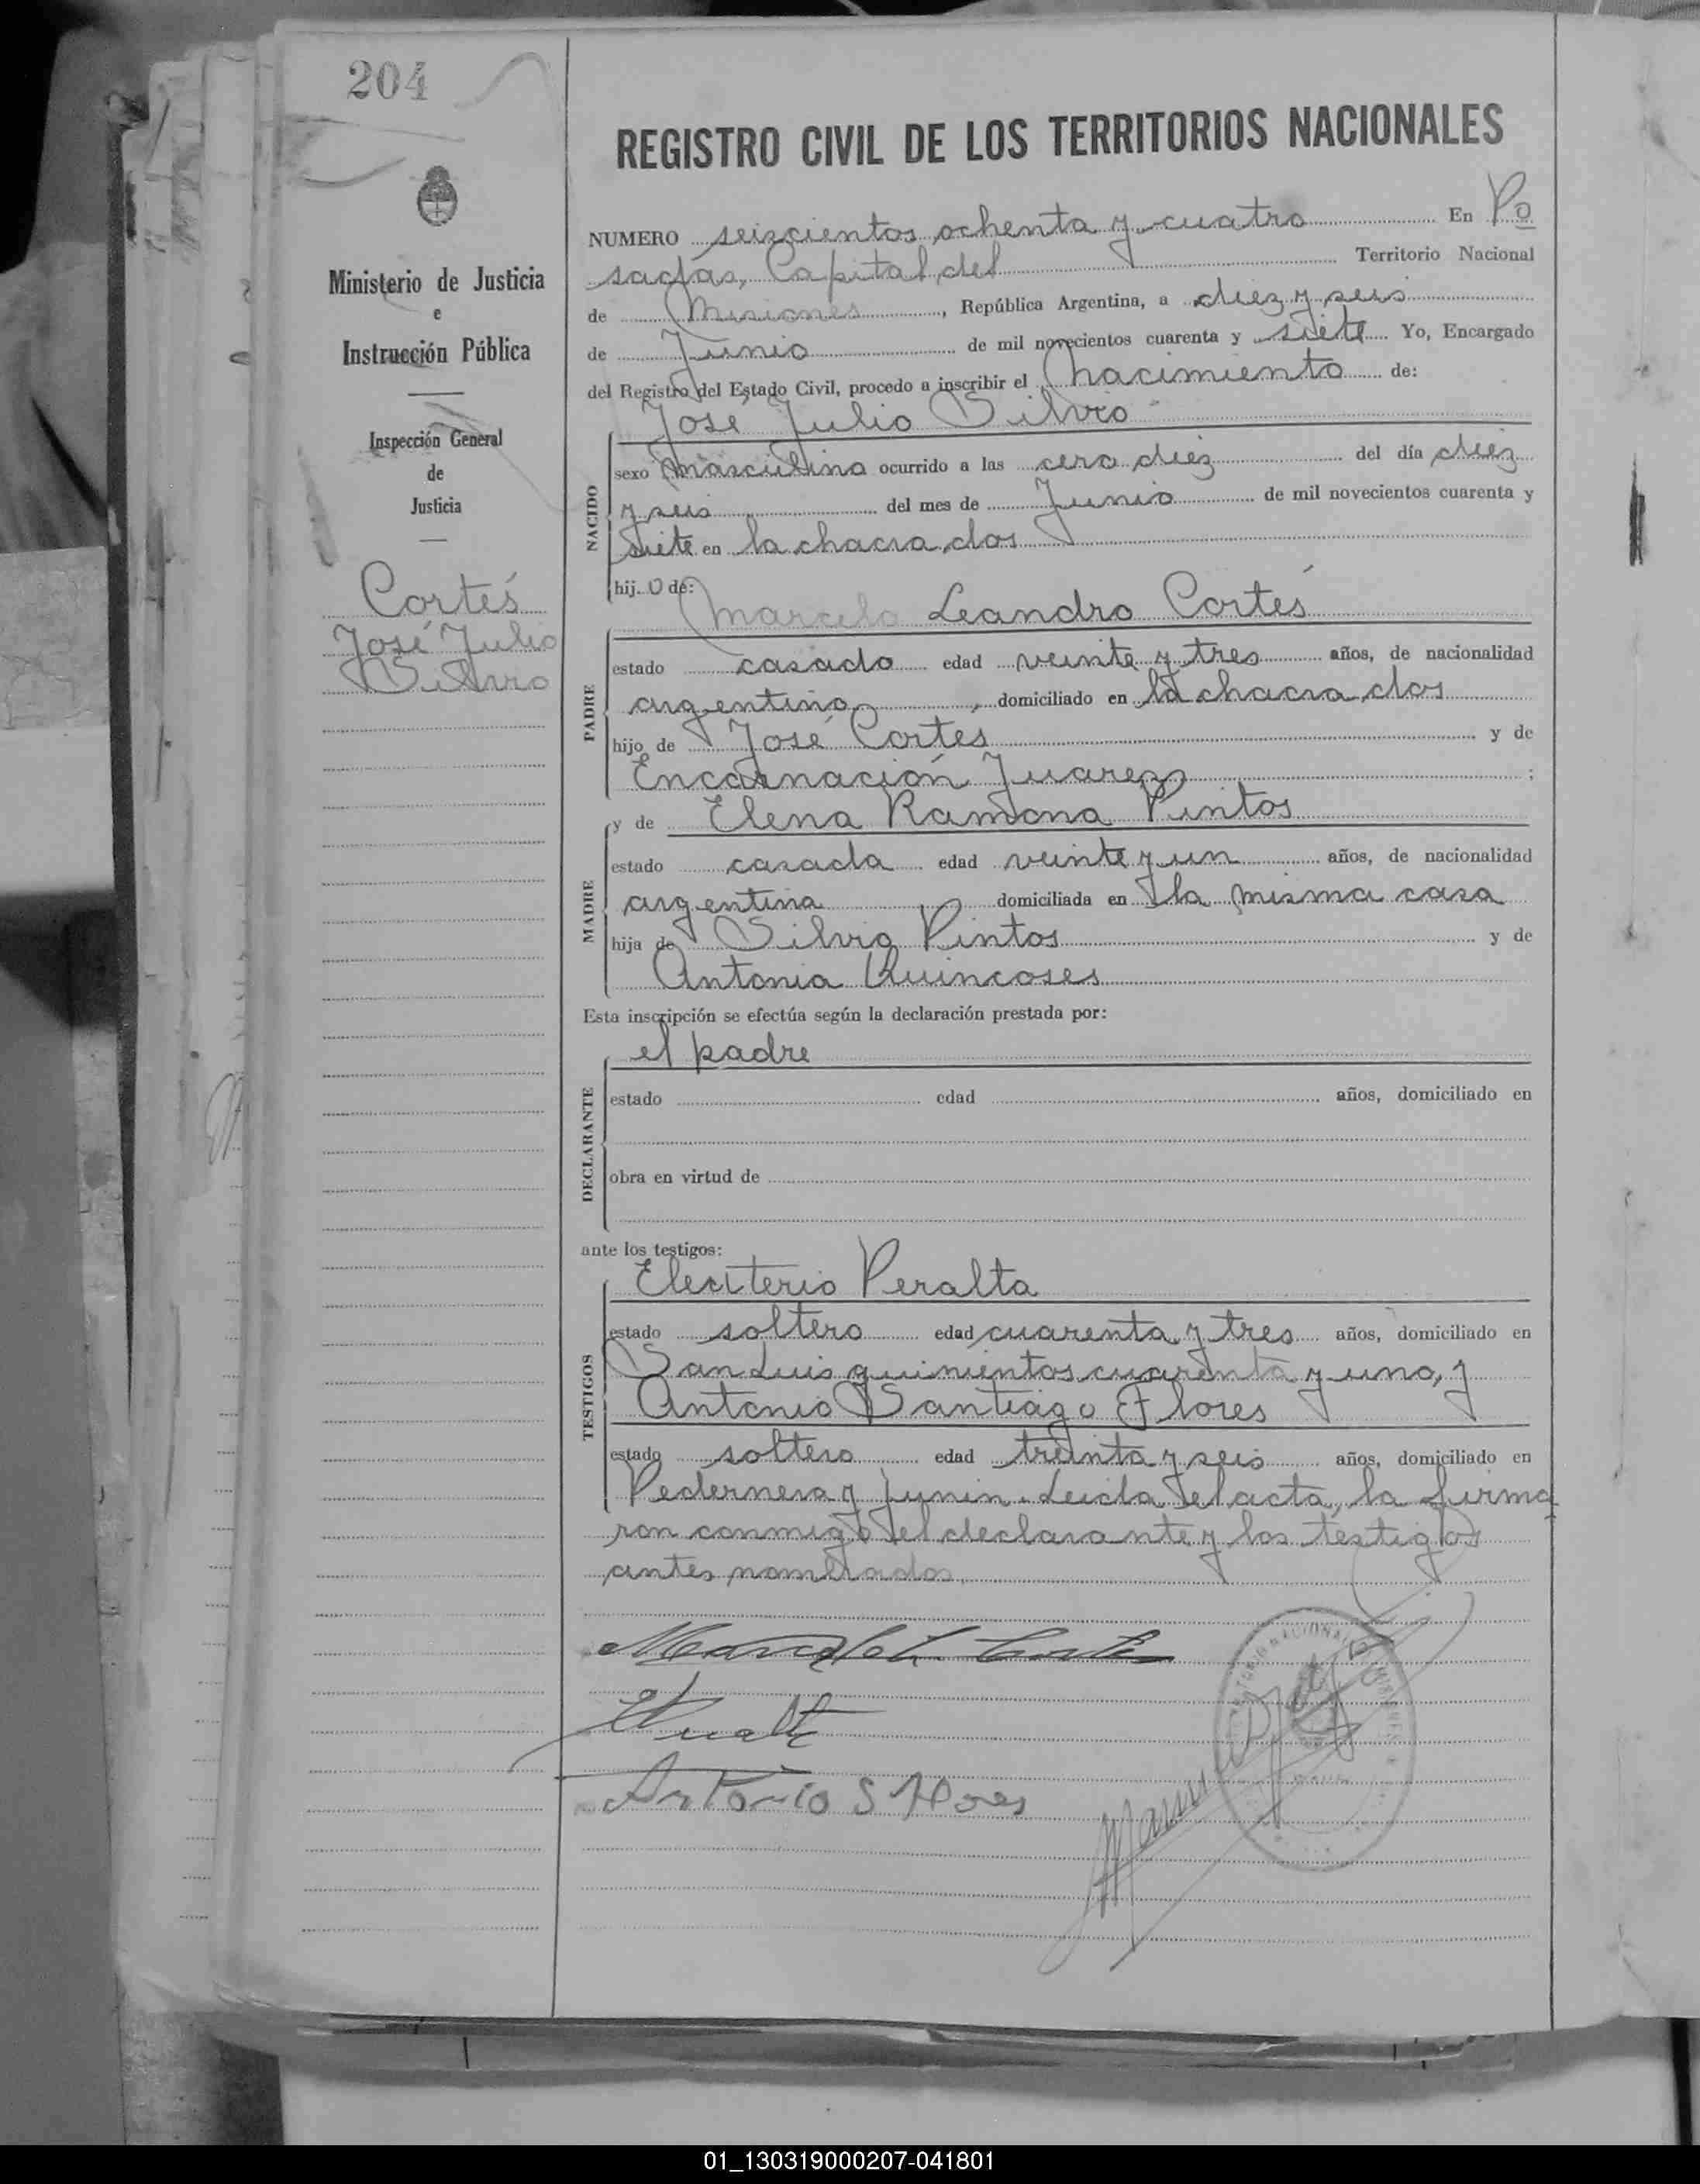 204
Ministerio de Justicia
e
Instrucción Pública
Inspección General
de
Justicia
Cortés
José Julio
Silvio
REGISTRO CIVIL DE LOS TERRITORIOS NACIONALES
NUMERO seizcientos ochenta y cuatro En Po
sadas, Capital del Territorio Nacional
de Misiones, República Argentina, a diez y seis
de Junio de mil novecientos cuarenta y siete Yo, Encargado
del Registro del Estado Civil, procedo a inscribir el nacimiento de:
José Julio Silvio
NACIDO
sexo masculino ocurrido a las cero diez del día diez
y seis del mes de Junio de mil novecientos cuarenta y
siete en la chacra dos
hijo de:
Marcelo Leandro Cortés
PADRE
estado casado edad veinte y tres años, de nacionalidad
argentino, domiciliado en la chacra dos
hijo de José Cortes y de
Encarnación Juarez;
MADRE
y de Elena Ramona Pintos
estado casada edad veinte y un años, de nacionalidad
argentina domiciliada en la misma casa
hija de Silvio Pintos y de
Antonia Quincoses
Esta inscripción se efectúa según la declaración prestada por:
DECLARANTE
el padre
estado edad años, domiciliado en
obra en virtud de
ante los testigos:
TESTIGOS
Eleuterio Peralta
estado soltero edad cuarenta y tres años, domiciliado en
San Luis quinientos cuarenta y uno, y
Antonio Santiago Flores
estado soltero edad treinta y seis años, domiciliado en
Pedernera y Junin. Leida el acta, la firma
ron conmigo el declarante y los testigos
antes nombrados.
Antonio S Flores
01_130319000207-041801